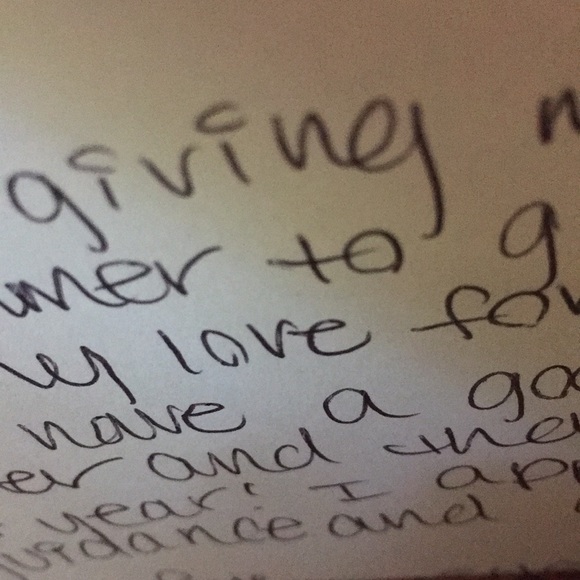 giving
to g
love for
have a go
er and the
year! I app
guidance and